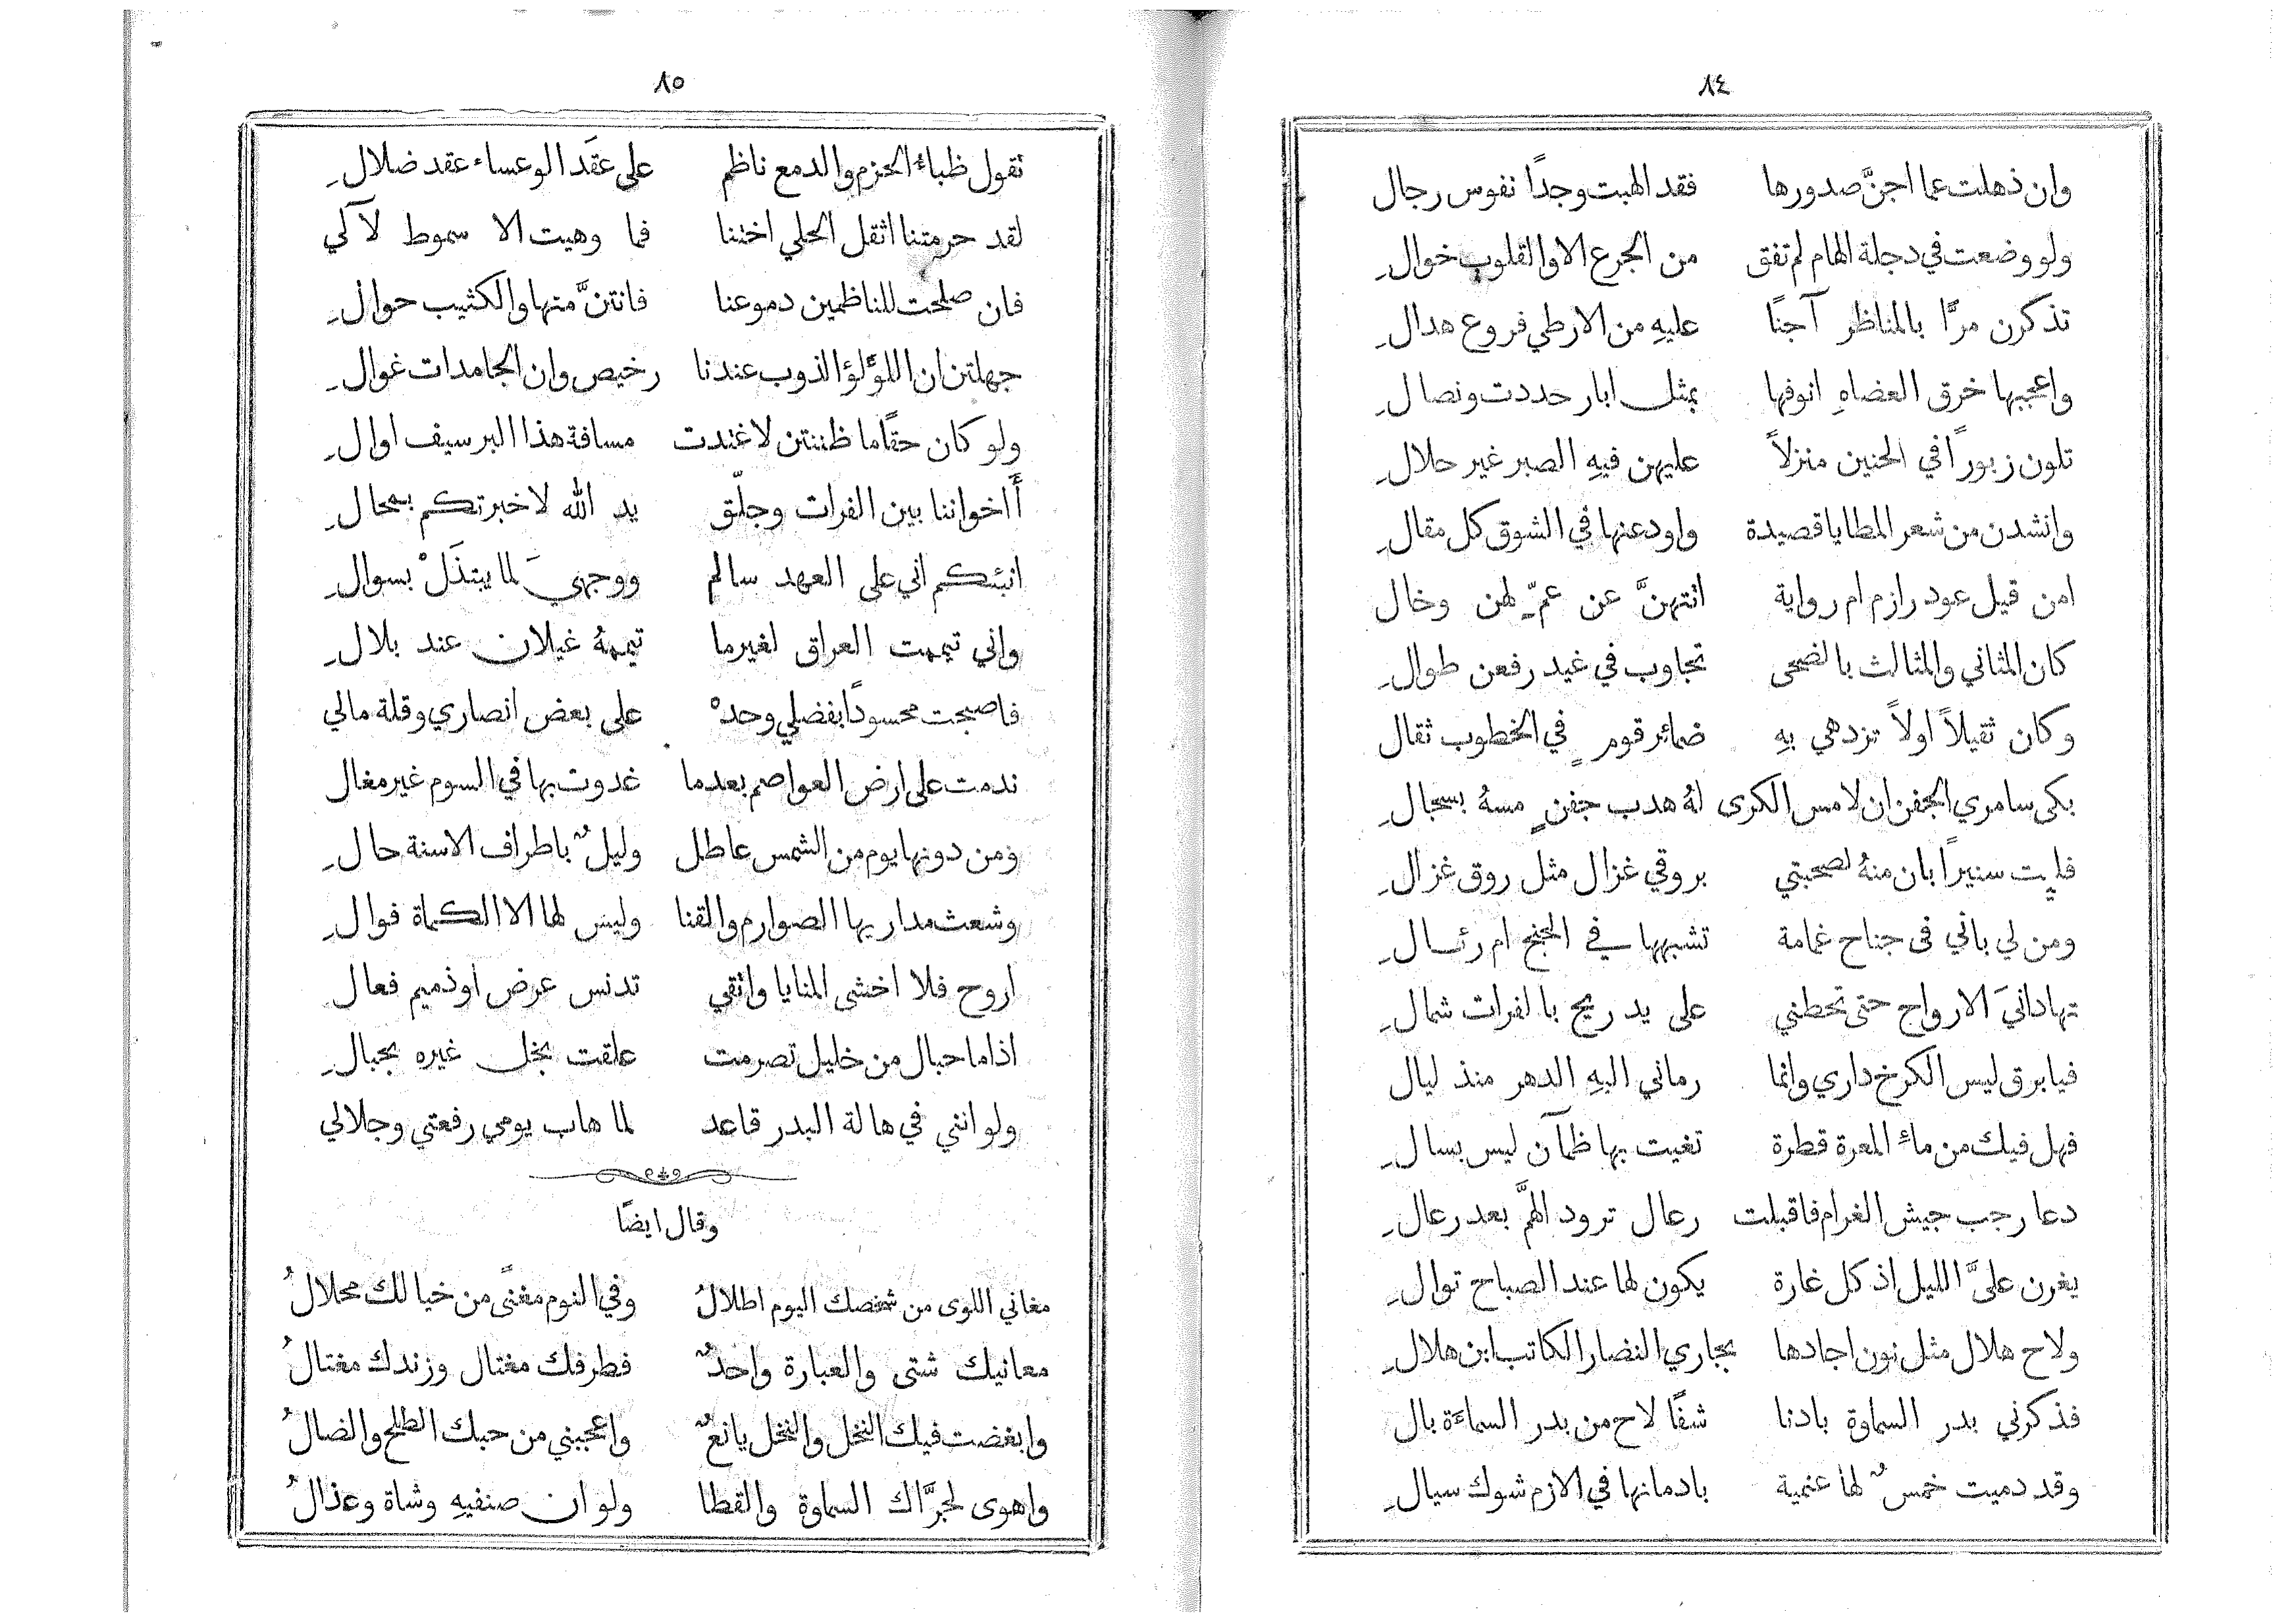 ٨٤
وان ذهلت عما اجنَّ صدورها فقد الهبت وجدًا نفوس رجال
ولو وضعت في دجلة الهام لم تفق من الجرع الا والقلوب خوالِ
تذكرن مرًّا بالمناظر آجنًا عليهِ من الارطي فروع هدالِ
واعجبها خرق العضاهِ انوفها بمثل ابار حددت ونصالِ
تلون زبورًا في الحنين منزلاً عليهن فيهِ الصبر غير حلالِ
وانشدن من شعر المطايا قصيدة واودعنها في الشوق كل مقالِ
امن قيل عود رازم ام رواية انتهنَّ عن عمٍّ لهن وخال
كان المثاني والمثالث بالضحى تجاوب في غيد رفعن طوالِ
وكان ثقيلاً اولاً تزدهي بهِ ضمائر قومٍ في الخطوب ثقال
بكى سامري الجفن ان لامس الكرى لهُ هدب جفنٍ مسهُ بسجالِ
فليت سنيرًا بان منهُ لصحبتي بروقي غزال مثل روق غزالِ
ومن لي باني فى جناح غمامة تشبهها في الجنح ام رئالِ
تهادانيَ الارواح حتى تحطني على يد ريح بالفرات شمالِ
فيا برق ليس الكرخ داري وانما رماني اليهِ الدهر منذ ليال
فهل فيك من ماءِ المعرة قطرة تغيث بها ظمآن ليس بسالِ
دعا رجب جيش الغرام فاقبلت رعال ترود الهمَّ بعد رعالِ
يغرن عليَّ الليل اذ كل غارة يكون لها عند الصباح توالِ
ولاح هلال مثل نون اجادها بجاري النضار الكاتب ابن هلالِ
فذكرني بدر السماوة بادنا شفًا لاح من بدر السماءَة بال
وقد دميت خمسٌ لها عنمية بادمانها في الازم شوك سيالِ
٨٥
تقول ظباءُ الحزم والدمع ناظم على عقَد الوعساء عقد ضلالِ
لقد حرمتنا اثقل الحلي اختنا فما وهبت الا سموط لآلي
فان صلحت للناظمين دموعنا فانتنَّ منها والكثيب حوالِ
جهلتن ان اللؤلؤ الذوب عندنا رخيص وان الجامدات غوالِ
ولو كان حقًا ما ظننتن لاغتدت مسافة هذا البر سيف اوالِ
أَاخواننا بين الفرات وجلّق يد الله لا خبرتكم بمحالِ
انبئكم اني على العهد سالم ووجهيَ لما يبتذَلْ بسوالِ
واني تيممت العراق لغيرما تيممهُ غيلان عند بلالِ
فاصبحت محسودًا بفضلي وحدهْ على بعض انصاري وقلة مالي
ندمت على ارض العواصم بعدما غدوت بها في السوم غير مغال
ومن دونها يوم من الشمس عاطل وليلٌ باطراف الاسنة حالِ
وشعث مداريها الصوارم والقنا وليس لها الا الكماة فوالِ
اروح فلا اخشى المنايا واتقي تدنس عرض اوذميم فعال
اذا ما حبال من خليل تصرمت علقت بخل غيره بحبالِ
ولو انني في هالة البدر قاعد لما هاب يومي رفعتي وجلالي
وقال ايضًا
مغاني اللوى من شخصك اليوم اطلالُ وفي النوم مغنًى من خيالك محلالُ
معانيك شتى والعبارة واحدٌ فطرفك مغتال وزندك مغتالُ
وابغضت فيك النخل والنخل يانعٌ واعجبني من حبك الطلح والضالُ
واهوى لجرَّاك السماوة والقطا ولو ان صنفيهِ وشاة وعذالُ